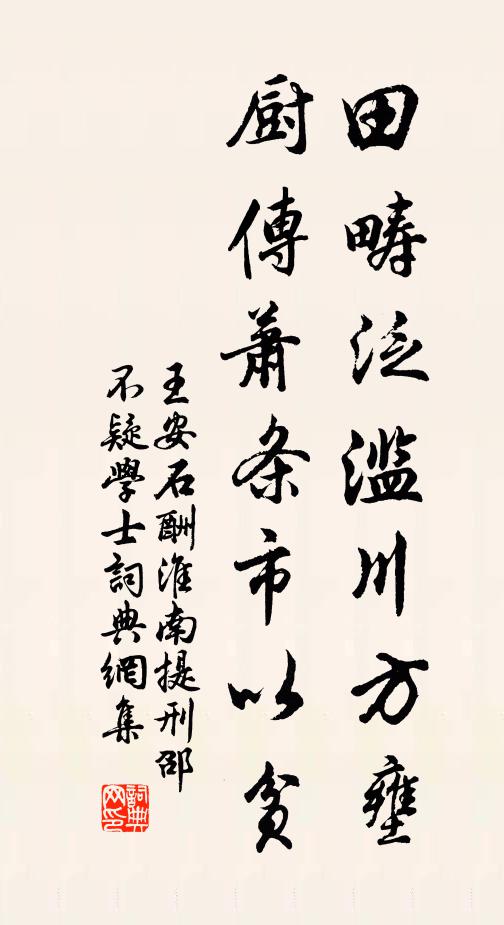 田疇泛滥川方壅
厨傳蕭条市以貧
王安石酬淮南提刑邵
不疑學士詞典網集
詞典网印